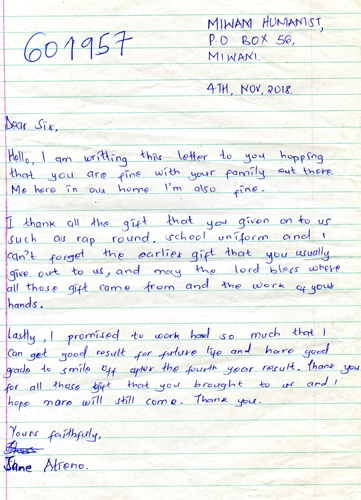 MIWANI HUMANIST,
601957
P.O BOX 56,
MIWANI.
4TH, NOV, 2018.
Dear Six,
Hello, I am writting this letter to you hopping
that you are fine with your family out there.
Me here in our home I'm also fine.
I thank all the gift that you given on to us
such as rap round, school uniform and I
can't forget the earlier gift that you usually
give out to us, and may the lord bless where
all those gift come from and the work of your
hands.
Lastly, I promised to work had so much that I
can get good result for future life and have good
grade to smile off after the fourth year result. Thank you
for all those gift that you brought to us and I
hope more will still come. Thank you.
Yours faithfully,
Jane Atieno.